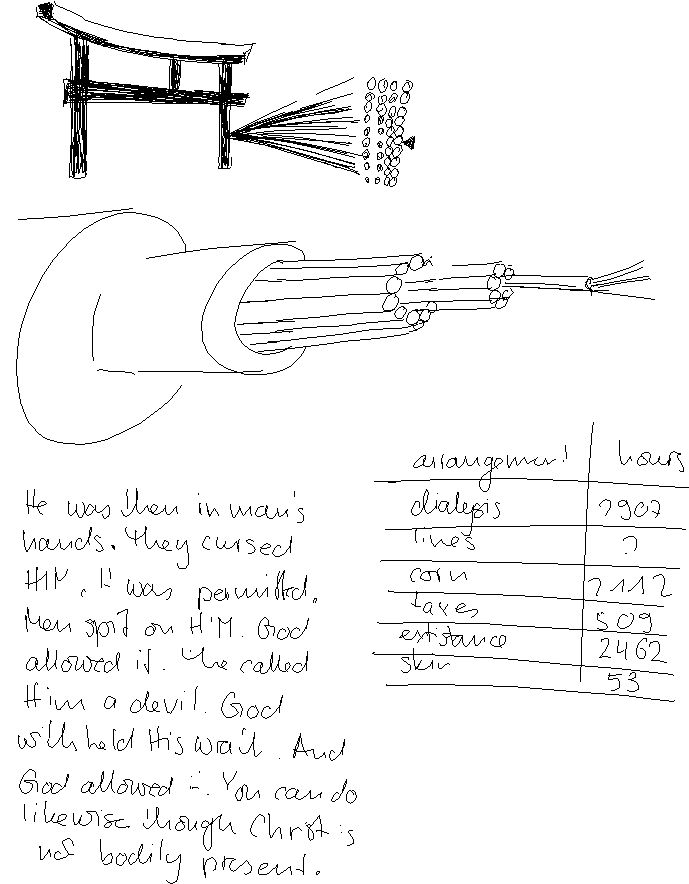 He was then in man's
hands. They cursed
HIM. It was permitted.
Men spit on HIM. God
allowed it. The called
Him a devil. God
withheld His wrath. And
God allowed it. You can do
likewise though Christ is
not bodily present.
arrangement hours
dialegis 1907
lines
corn 2112
taxes 509
existance 2462
skin 53